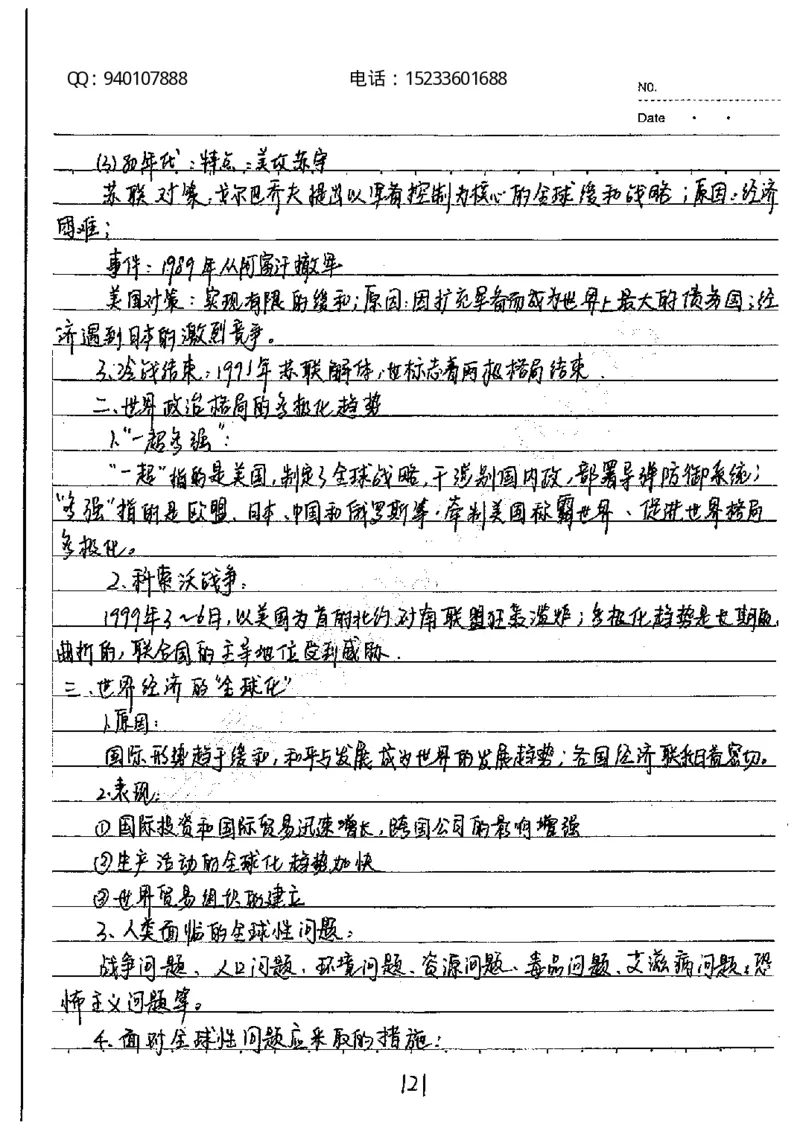 QQ：940107888 电话：15233601688
NO.
Date · ·
(3) 80年代：特点：美攻苏守
苏联对策，戈尔巴乔夫提出以军备控制为核心的全球缓和战略；原因：经济
困难；
事件：1989年从阿富汗撤军
美国对策：实现有限的缓和；原因：因扩充军备而成为世界上最大的债务国；经
济遇到日本的激烈竞争。
3、冷战结束：1991年苏联解体，也标志着两极格局结束．
二、世界政治格局的多极化趋势
1、“一超多强”：
“一超”指的是美国，制定了全球战略，干涉别国内政，部署导弹防御系统；
“多强”指的是欧盟、日本、中国和俄罗斯等，牵制美国称霸世界、促进世界格局
多极化。
2、科索沃战争：
1999年3～6月，以美国为首的北约对南联盟狂轰滥炸；多极化趋势是长期的、
曲折的，联合国的主导地位受到威胁．
三、世界经济的“全球化”
1、原因：
国际形势趋于缓和，和平与发展成为世界的发展趋势；各国经济联系日着密切。
2、表现：
①国际投资和国际贸易迅速增长，跨国公司的影响增强
②生产活动的全球化趋势加快
③世界贸易组织的建立
3、人类面临的全球性问题：
战争问题、人口问题、环境问题、资源问题、毒品问题、艾滋病问题、恐
怖主义问题等。
4、面对全球性问题应采取的措施：
121